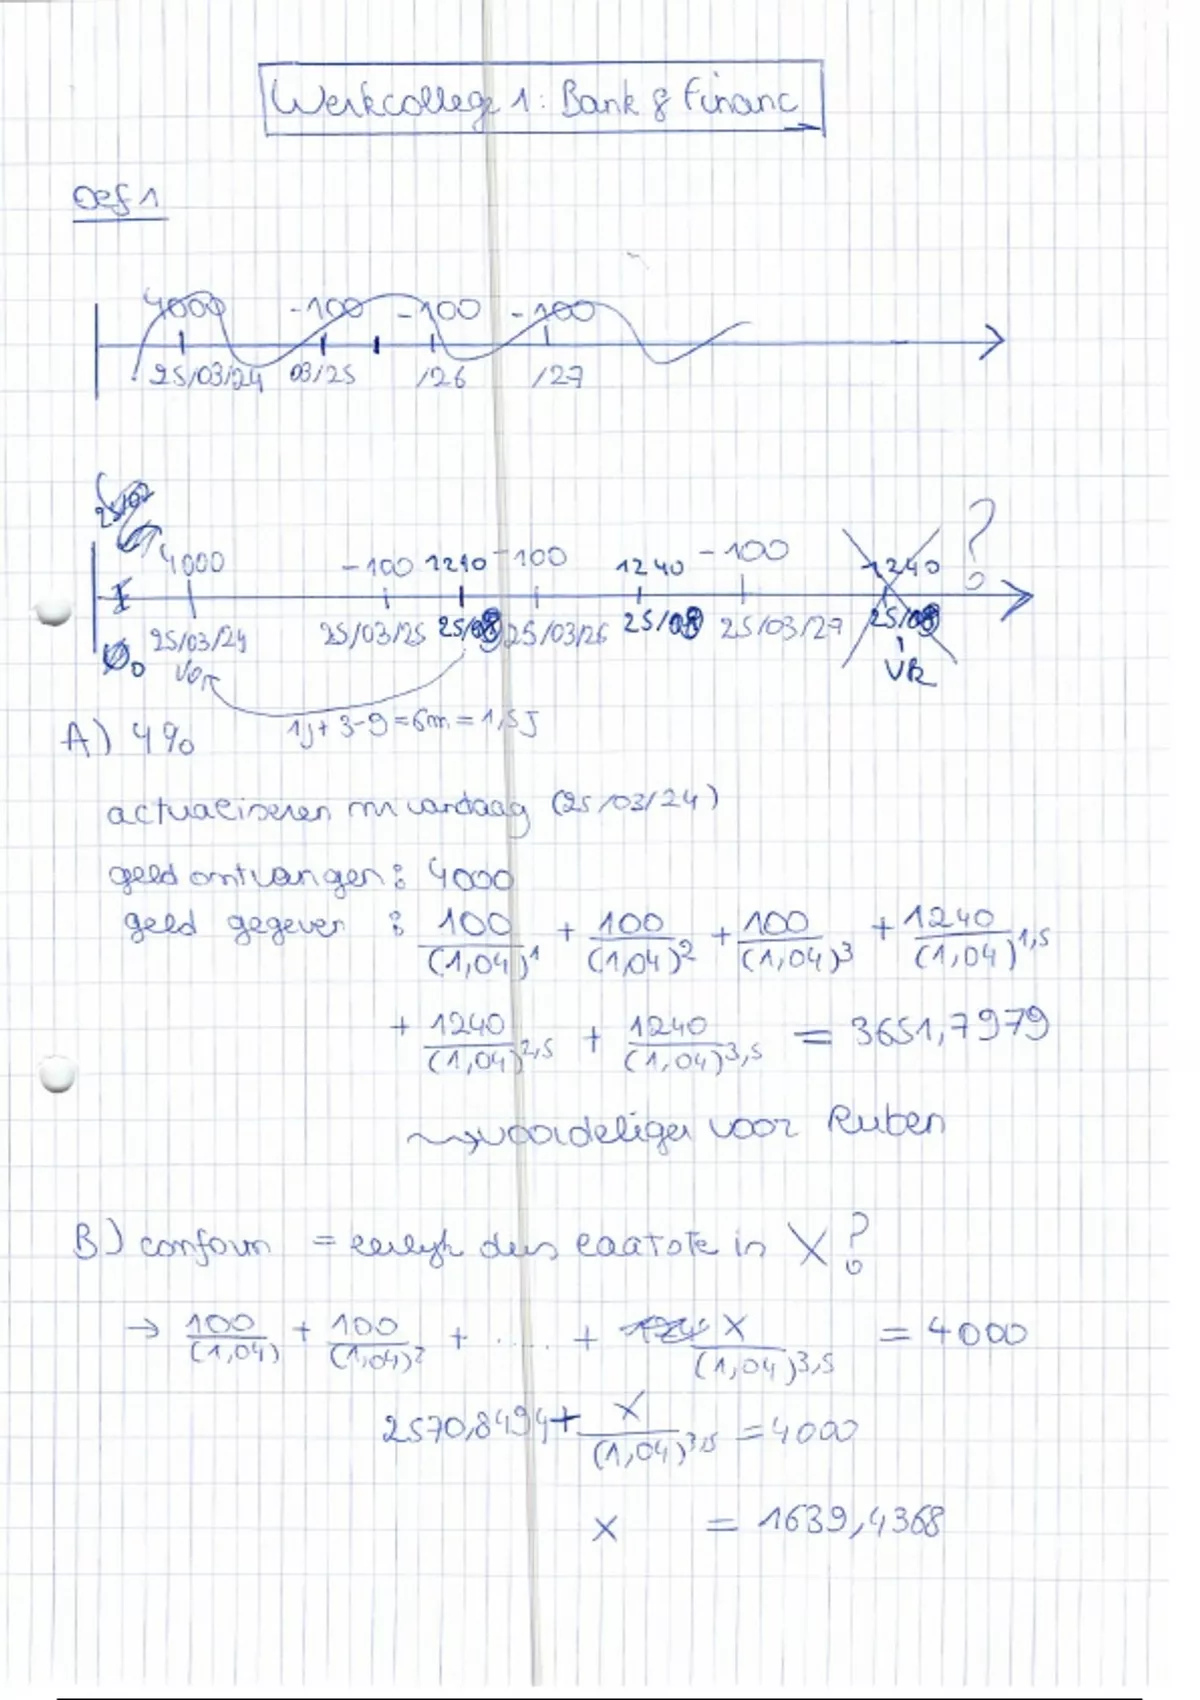 Werkcollege 1: Bank & Financ
Oef 1
4000 -100 -100 -100
25/03/24 03/25 /26 /27
4000 -100 1240 -100 1240 -100 1240 ?
25/03/24 25/03/25 25/09 25/03/26 25/09 25/03/27 25/09
V0 VR
1j + 3-9 = 6m = 1,5J
A) 4%
actualiseren nr vandaag (25/03/24)
geld ontvangen : 4000
geld gegeven : 100/(1,04)^1 + 100/(1,04)^2 + 100/(1,04)^3 + 1240/(1,04)^1,5
+ 1240/(1,04)^2,5 + 1240/(1,04)^3,5 = 3651,7979
⇝ voordeliger voor Ruben
B) conform = eerlijk dus laatste in X?
→ 100/(1,04) + 100/(1,04)^2 + .... + X/(1,04)^3,5 = 4000
2570,8494 + X/(1,04)^3,5 = 4000
x = 1639,4368